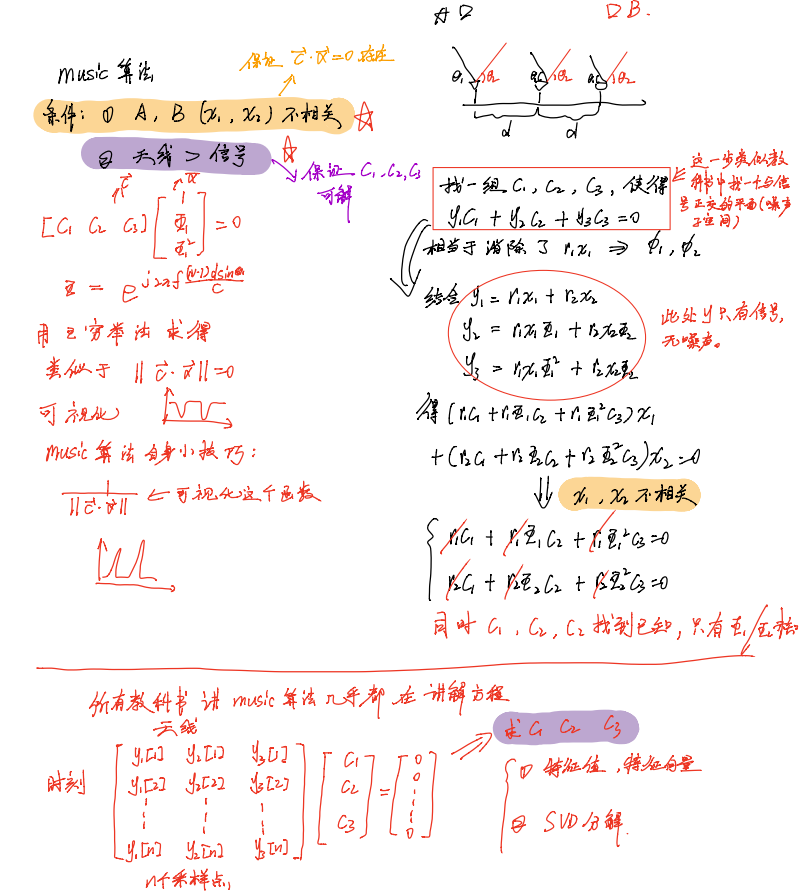 music 算法
保证 c⃗·α⃗=0 存在
条件: ① A, B (x₁, x₂) 不相关
② 天线 > 信号
保证 C₁, C₂, C₃
可解
c⃗ α⃗
[C₁ C₂ C₃] [1 Φ₁ Φ₁²] = 0
用已穷举法求得
类似于 ||c⃗·α⃗||=0
可视化
music 算法自身小技巧:
1/||c⃗·α⃗|| ← 可视化这个函数
A B.
θ₁ θ₂ θ₁ θ₂ θ₁ θ₂
d d
找一组 C₁, C₂, C₃, 使得
y₁C₁ + y₂C₂ + y₃C₃ = 0
这一步类似教
科书中找一个与信
号正交的平面(噪声
子空间)
相当于消除了 r₁x₁ ⇒ Φ₁, Φ₂
结合 y₁ = r₁x₁ + r₂x₂
y₂ = r₁x₁Φ₁ + r₂x₂Φ₂
y₃ = r₁x₁Φ₁² + r₂x₂Φ₂
此处 y 只有信号,
无噪声。
得 (r₁C₁ + r₁Φ₁C₂ + r₁Φ₁²C₃)x₁
+ (r₂C₁ + r₂Φ₂C₂ + r₂Φ₂²C₃)x₂ = 0
x₁, x₂ 不相关
r₁C₁ + r₁Φ₁C₂ + r₁Φ₁²C₃ = 0
r₂C₁ + r₂Φ₂C₂ + r₂Φ₂²C₃ = 0
同时 C₁, C₂, C₂ 找到已知, 只有 Φ₁/Φ₂
所有教科书讲 music 算法几乎都在讲解方程
天线
时刻
y₁[1] y₂[1] y₃[1] C₁ 0
y₁[2] y₂[2] y₃[2] C₂ = 0
C₃
y₁[n] y₂[n] y₃[n] 0
n个采样点
求 C₁ C₂ C₃
① 特征值, 特征向量
② SVD 分解.